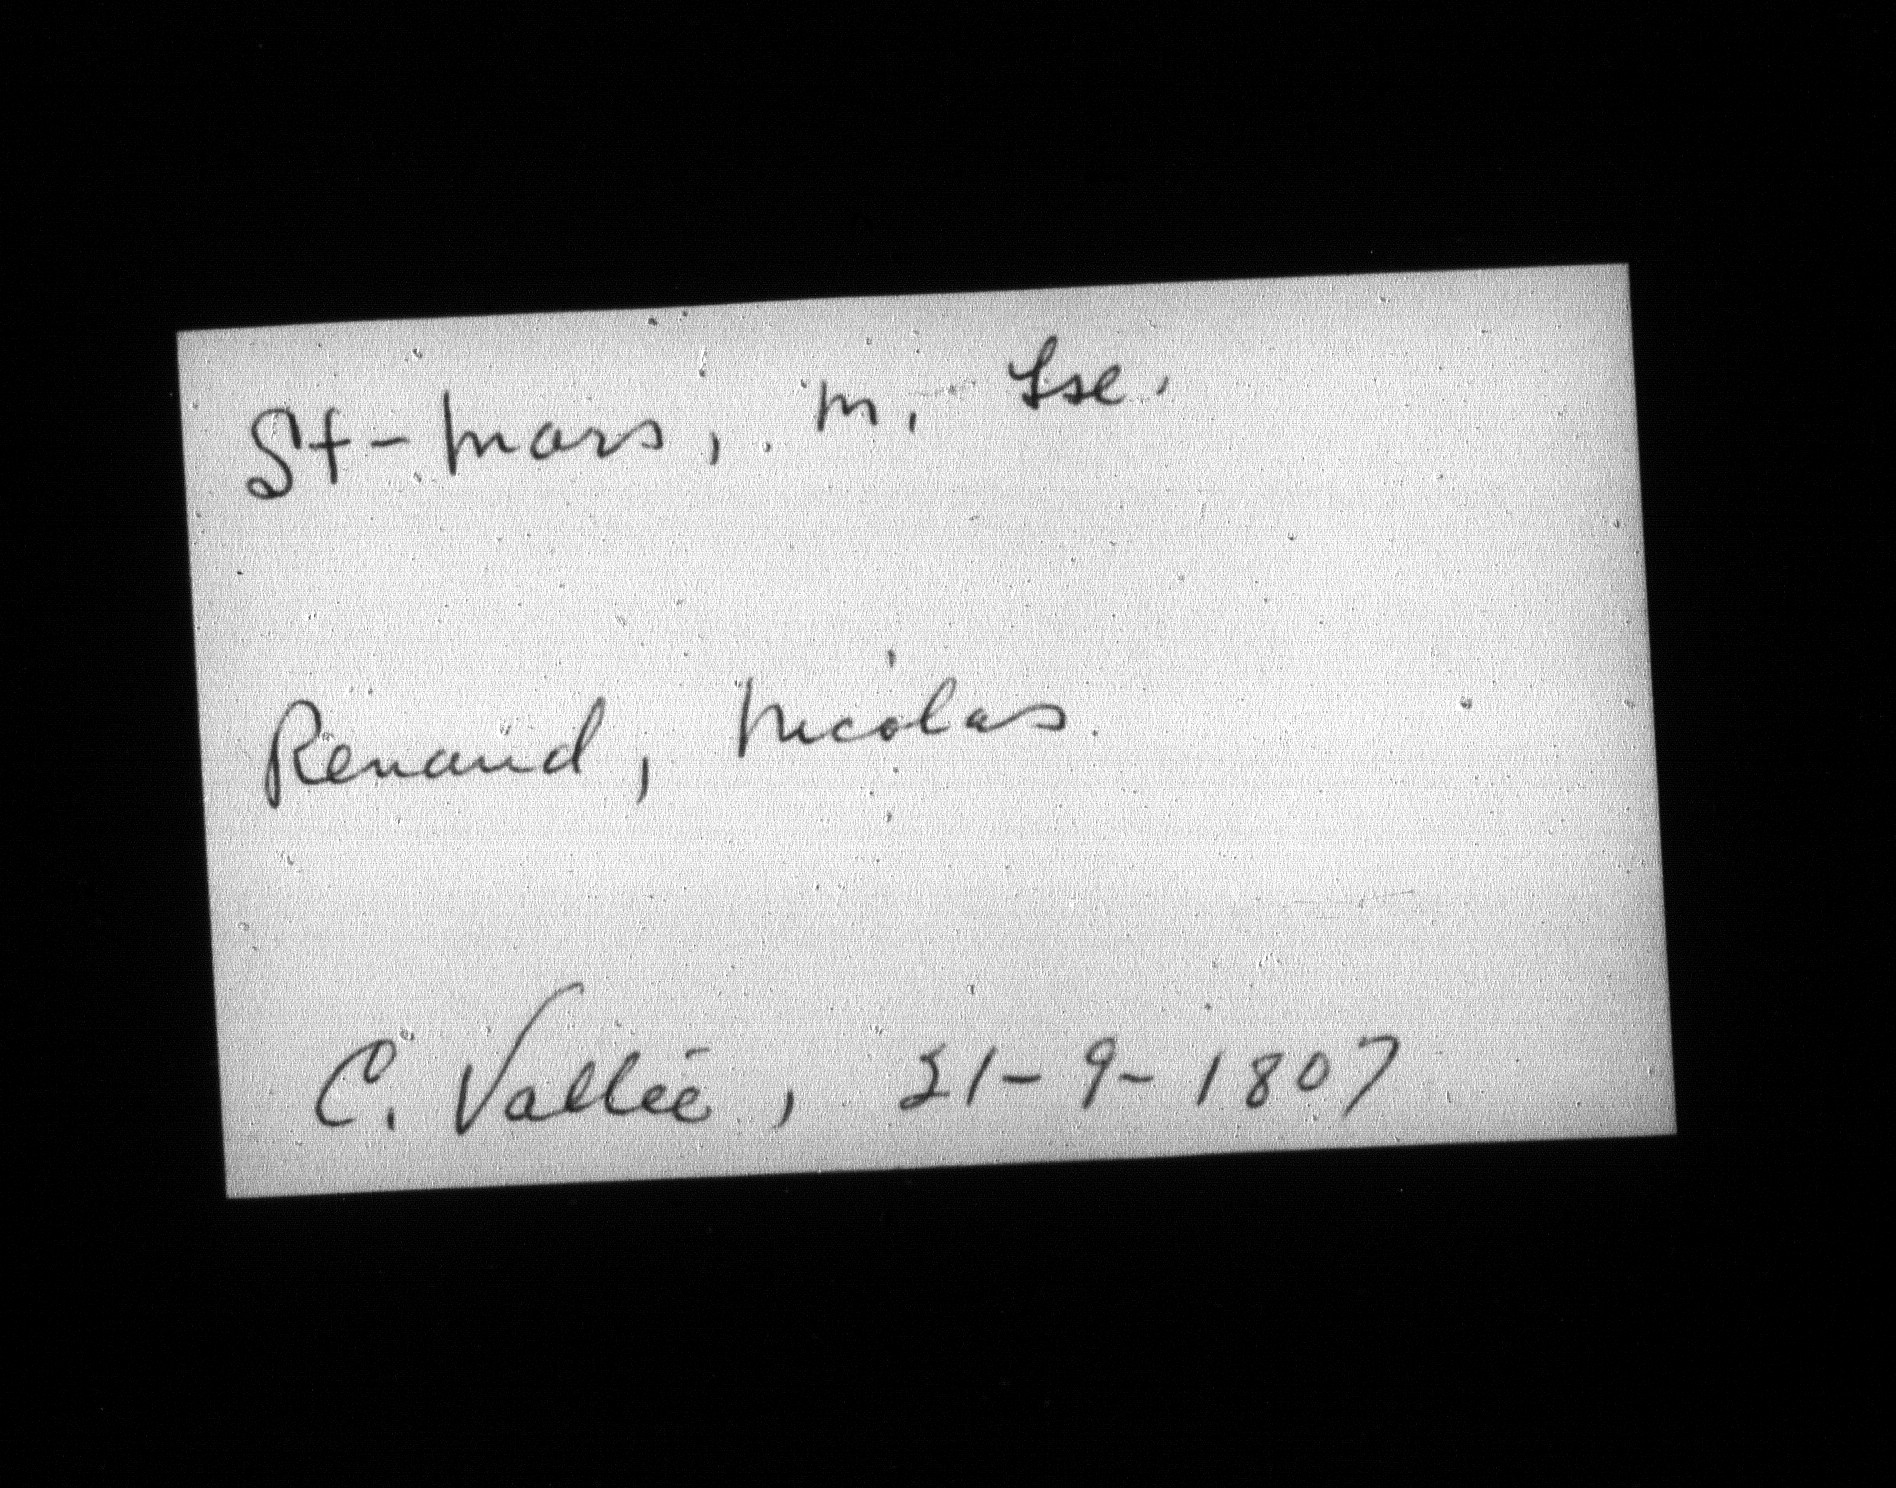 St-Mars, M. Lse.
Renaud, Nicolas
C. Vallée, 21-9-1807